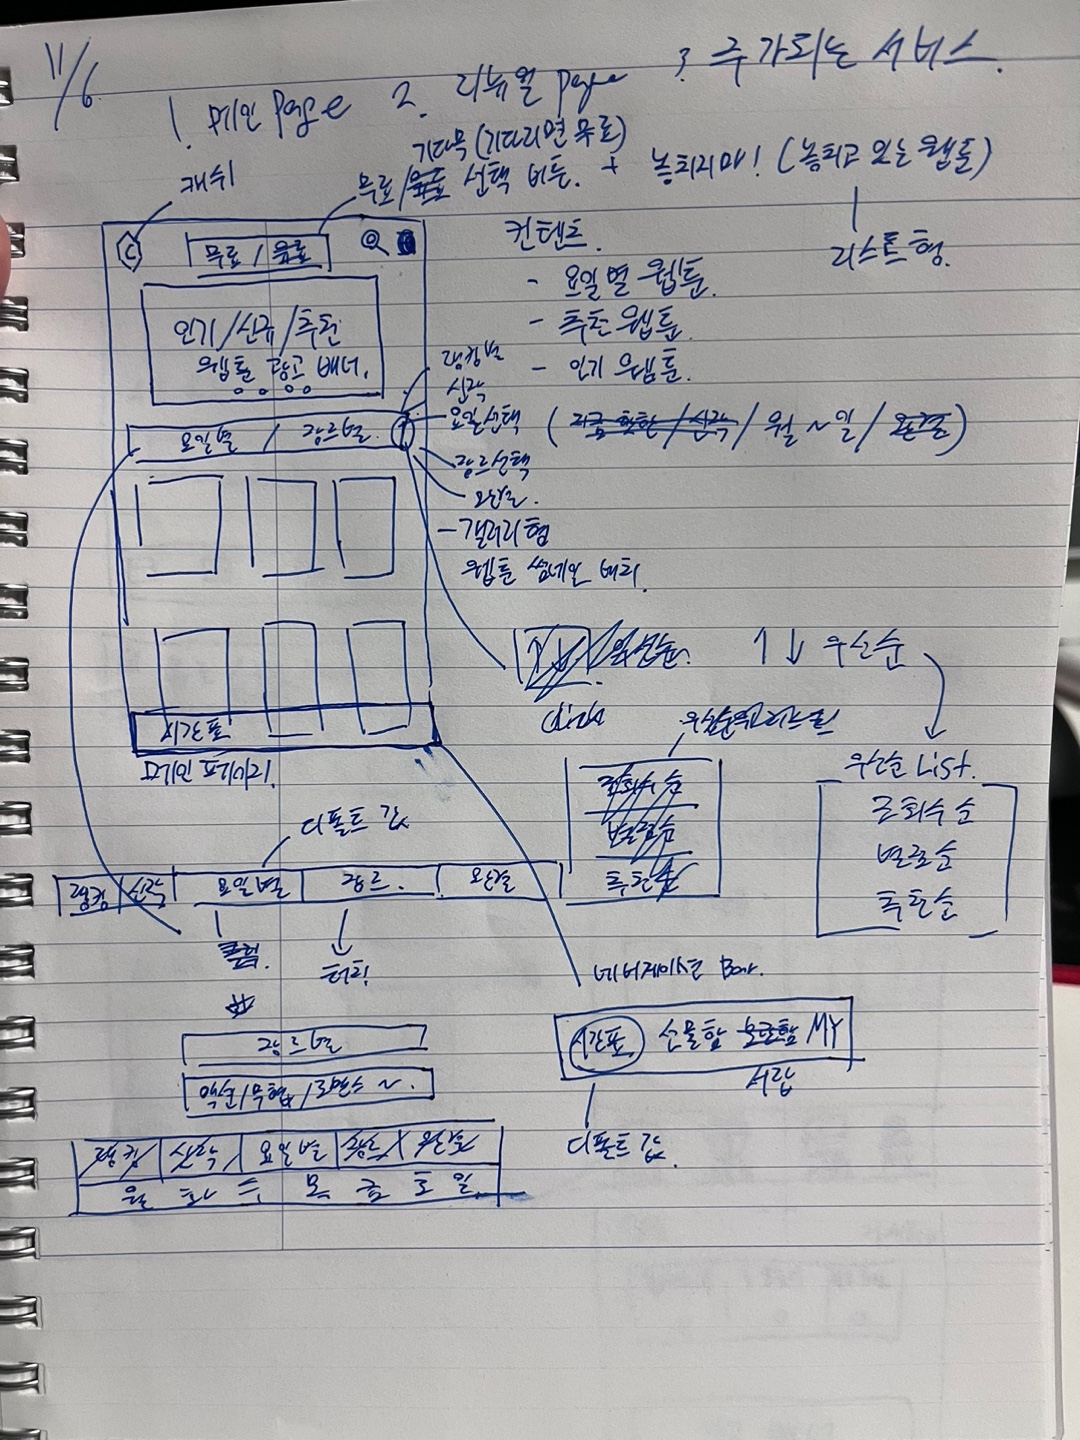 11/6
1. 메인 page 2. 리뉴얼 page 3. 추가되는 서비스.
기다무 (기다리면 무료)
캐쉬
무료/유료 선택 버튼. + 놓치지마! (놓치고 있는 웹툰)
리스트형.
C 무료 / 유료
컨텐츠.
- 요일별 웹툰.
- 추천 웹툰.
- 인기 웹툰.
인기/신규/추천
웹툰 광고 배너.
랭킹별
신작
요일선택 (지금 핫한/신작/ 월~일/ 완결)
장르선택
완결.
요일별 / 장르별.
- 갤러리형
웹툰 썸네일 배치.
↑↓ 우선순.
↑↓ 우선순
시간표
메인 페이지.
우선순 List.
조회수순
별점순
추천순
조회수순
별점순
추천순
디폴트 값
랭킹 신작 요일별 장르. 완결
터치.
네비게이션 Bar.
시간표 선물함 보관함 MY
서랍
디폴트 값.
장르별
액션/무협/로맨스 ~.
랭킹/ 신작/ 요일별 장르/ 완결
월 화 수 목 금 토 일